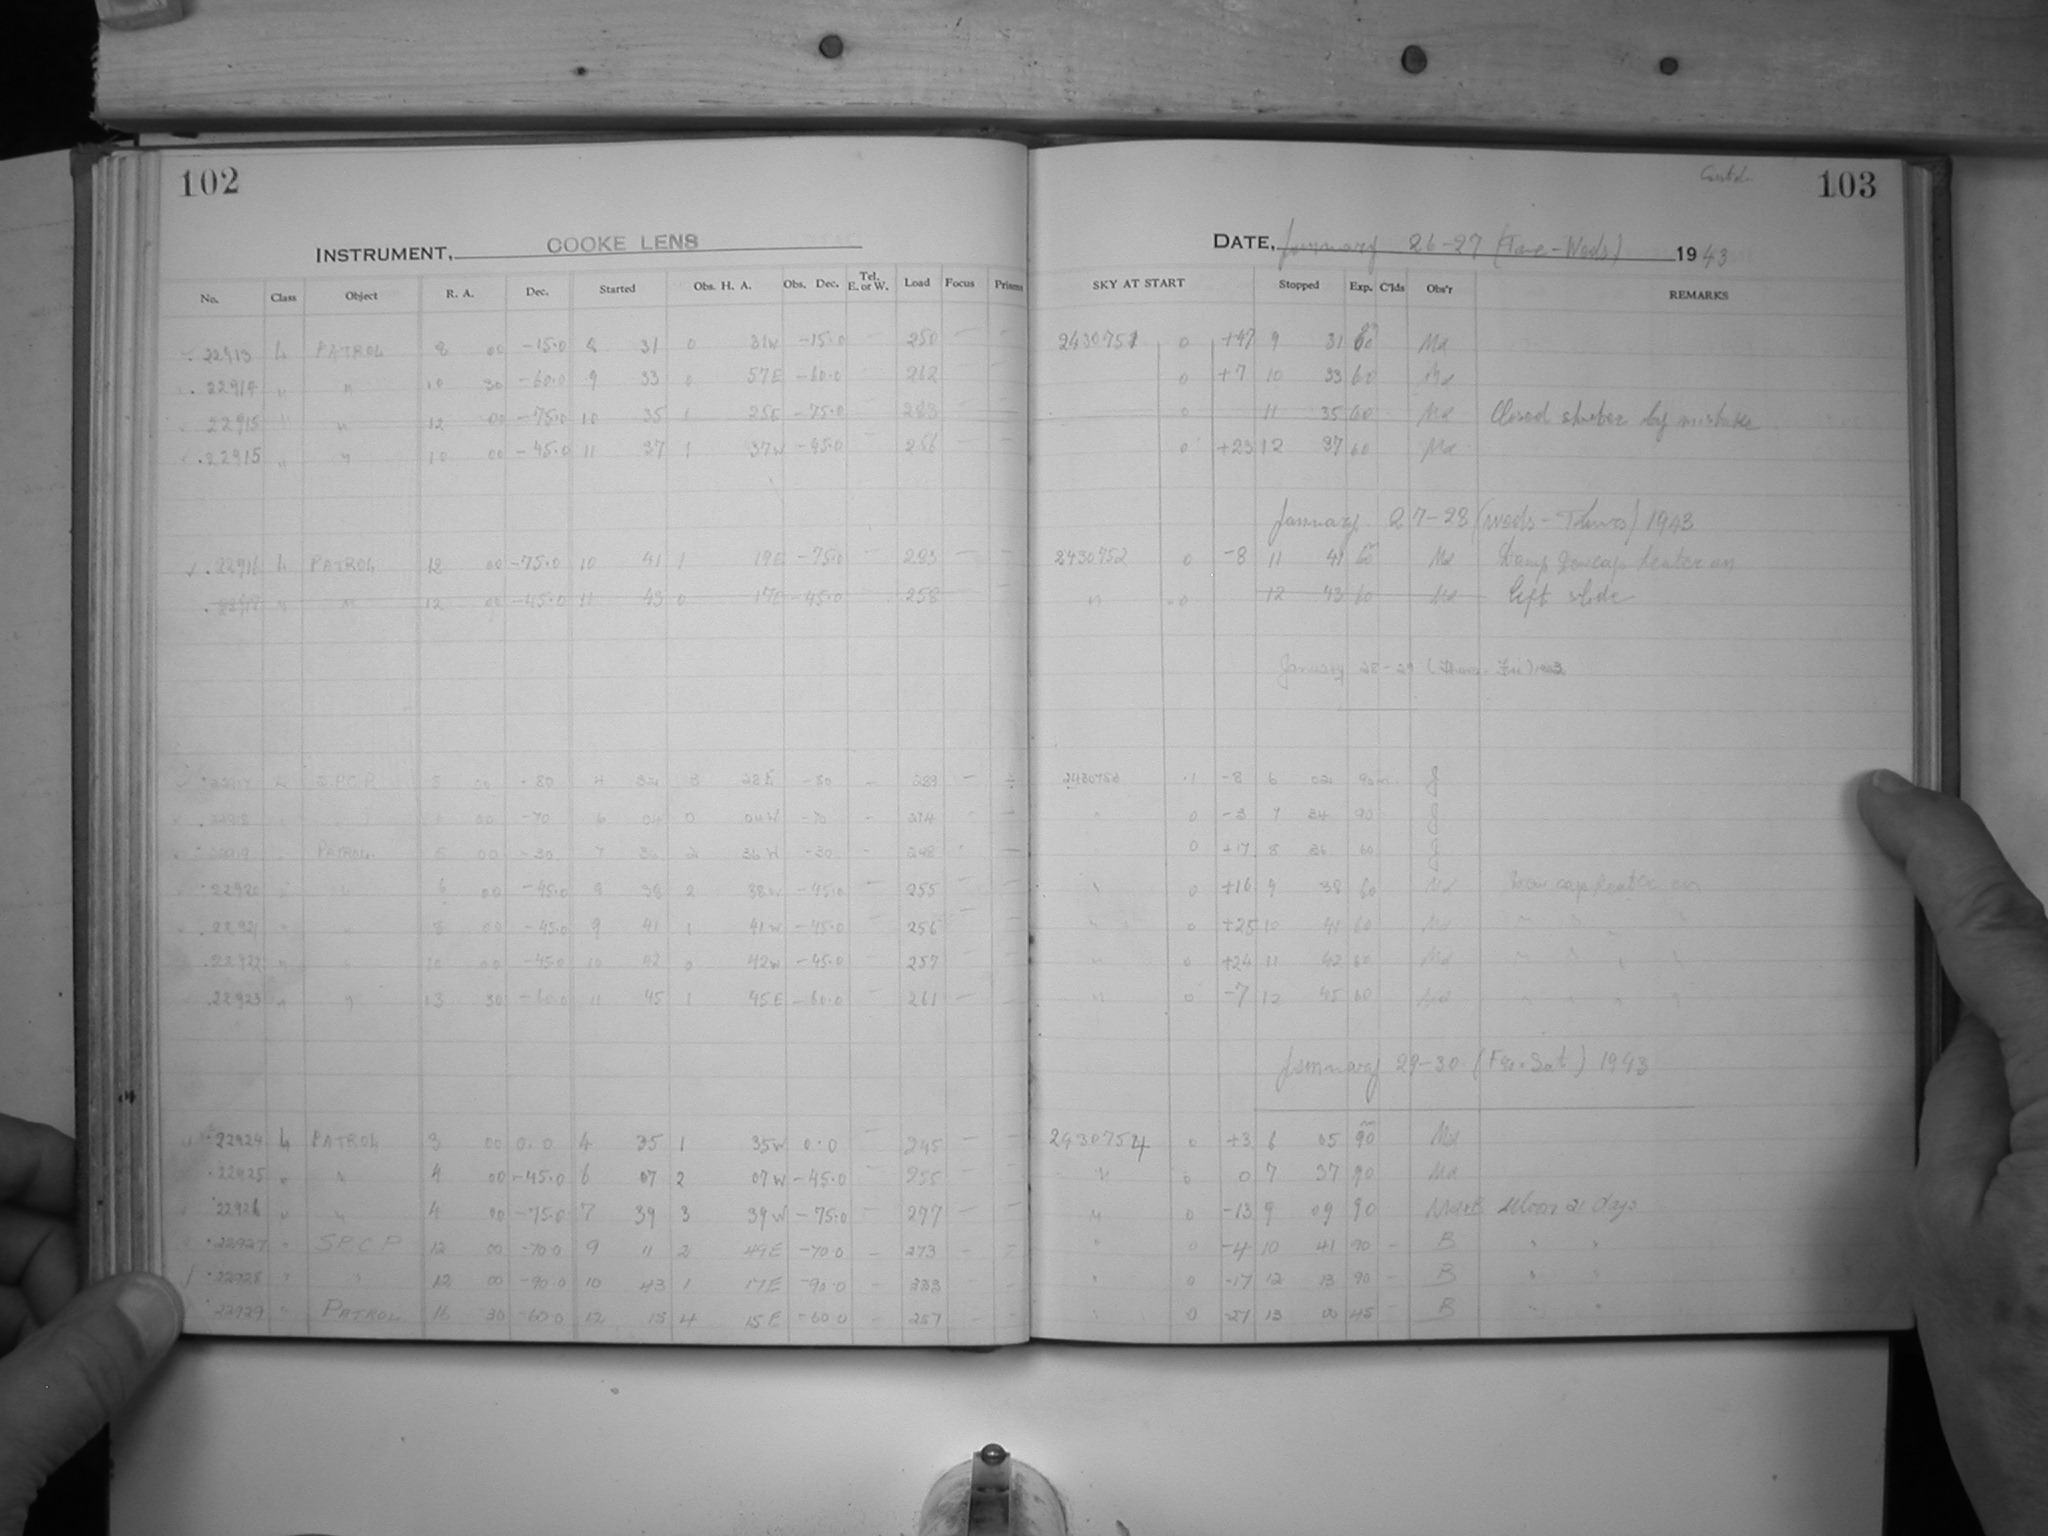 102
INSTRUMENT, COOKE LENS
No. Class Object R. A. Dec. Started Obs. H. A. Obs. Dec. Tel. E. or W. Load Focus Prisms
22913 L PATROL 8 00 -15.0 8 31 0 31W -15.0 — 250 — —
22914 " " 10 30 -60.0 9 33 0 57E -60.0 — 262 — —
22915 " " 12 00 -75.0 10 35 1 25E -75.0 — 283 — —
22915 " " 10 00 -45.0 11 37 1 37W -45.0 — 256 — —
22916 L PATROL 12 00 -75.0 10 41 1 19E -75.0 — 283 — —
" " 12 00 -45.0 11 43 0 17E -45.0 — 258 — —
22917 S.P.C.P. 00 -80 4 32 3 28E -80 — 289 —
22918 00 -70 6 04 0 04W -70 — 274 — —
22919 PATROL 5 00 -30 7 36 2 36W -30 — 248 —
22920 " " 6 00 -45.0 8 38 2 38W -45.0 — 255 — —
22921 " " 8 00 -45.0 9 41 1 41W -45.0 — 256 — —
22922 " " 10 00 -45.0 10 42 0 42W -45.0 — 257 — —
22923 " " 13 30 -60.0 11 45 1 45E -60.0 — 261 — —
22924 L PATROL 3 00 0.0 4 35 1 35W 0.0 — 245 — —
22925 " " 4 00 -45.0 6 07 2 07W -45.0 — 255 — —
22926 " " 4 00 -75.0 7 39 3 39W -75.0 — 297 — —
22927 " S.P.C.P. 12 00 -70.0 9 11 2 49E -70.0 — 273 — —
22928 " " 12 00 -90.0 10 43 1 17E -90.0 — 333 — —
22929 " PATROL 16 30 -60.0 12 15 4 15E -60.0 — 257 — —
103
DATE, January 26-27 (Tue-Weds) 1943
SKY AT START Stopped Exp. C'lds Obs'r REMARKS
2430751 0 +47 9 31 60 Md
0 +7 10 33 60 Md
0 11 35 60 Md Closed shutter by mistake
0 +23 12 37 60 Md
January 27-28 (Weds-Thurs) 1943
2430752 0 -8 11 41 60 Md Damp dewcap heater on
" 0 12 43 60 Md left slide
January 28-29 (Thurs-Fri) 1943
2430753 .1 -8 6 02 90m J
" 0 -3 7 34 90 J
" 0 +17 8 36 60 J
" 0 +16 9 38 60 Md Dew cap heater on
" 0 +25 10 41 60 Md " " " "
" 0 +24 11 42 60 Md " " " "
" 0 -7 12 45 60 Md " " " "
January 29-30 (Fri-Sat) 1943
2430754 0 +3 6 05 90 Md
" 0 0 7 37 90 Md
" 0 -13 9 09 90 Moon 21 days
" 0 -4 10 41 90 — B " "
" 0 -17 12 13 90 — B " "
" 0 -27 13 00 45 — B " "